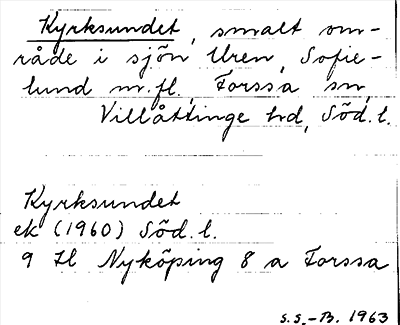 Kyrksundet, smalt om-
råde i sjön Uren, Sofie-
lund m.fl., Forssa sn,
Villåttinge hd, Söd.l.
Kyrksundet
ek (1960) Söd.l.
9 H Nyköping 8 a Forssa
S.S.-B. 1963